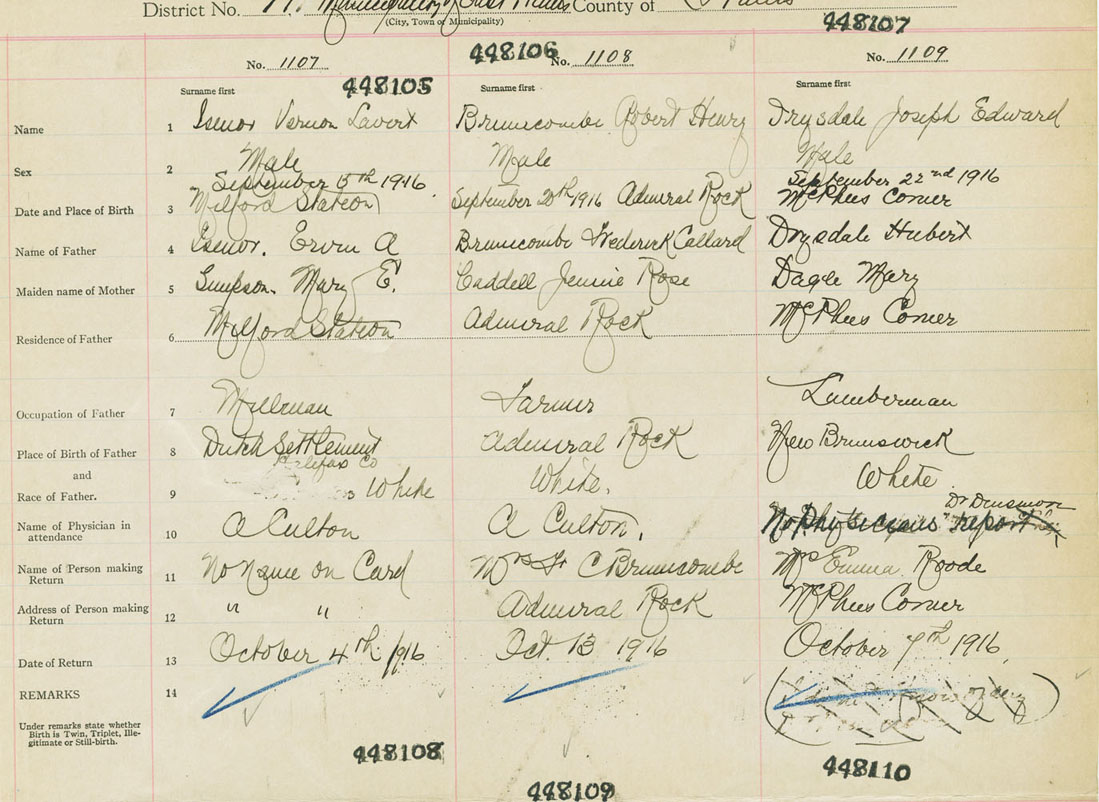 District No. Municipality of East Hants County of Hants
(City, Town or Municipality)
448107
448106
No. 1107
No. 1108
No. 1109
448105
Surname first
Surname first
Surname first
Name 1 Isenor Vernon Lavert Brunscombe Robert Henry Drysdale Joseph Edward
Sex 2 Male Male Male
September 15th 1916 September 22nd 1916
Date and Place of Birth 3 Milford Station September 20th 1916 Admiral Rock McPhees Corner
Name of Father 4 Isenor. Ervin A Brunscombe Frederick Callard Drysdale Hubert
Maiden name of Mother 5 Simpson. Mary E. Caddell Jennie Rose Dagle Mary
Residence of Father 6 Milford Station Admiral Rock McPhees Corner
Occupation of Father 7 Millman Farmer Lumberman
Place of Birth of Father 8 Dutch Settlement Admiral Rock New Brunswick
Halifax Co
and
Race of Father. 9 White White. White
Dr Dinsmore
Name of Physician in
attendance 10 A Culton A Culton. No Physicians report
Name of Person making
Return 11 No Name on Card Mrs F C Brunscombe Mrs Emma Roode
Address of Person making
Return 12 " " Admiral Rock McPhees Corner
Date of Return 13 October 4th 1916 Oct. 13 1916 October 7th 1916
REMARKS 14
Under remarks state whether
Birth is Twin, Triplet, Ille-
gitimate or Still-birth.
448108
448109
448110